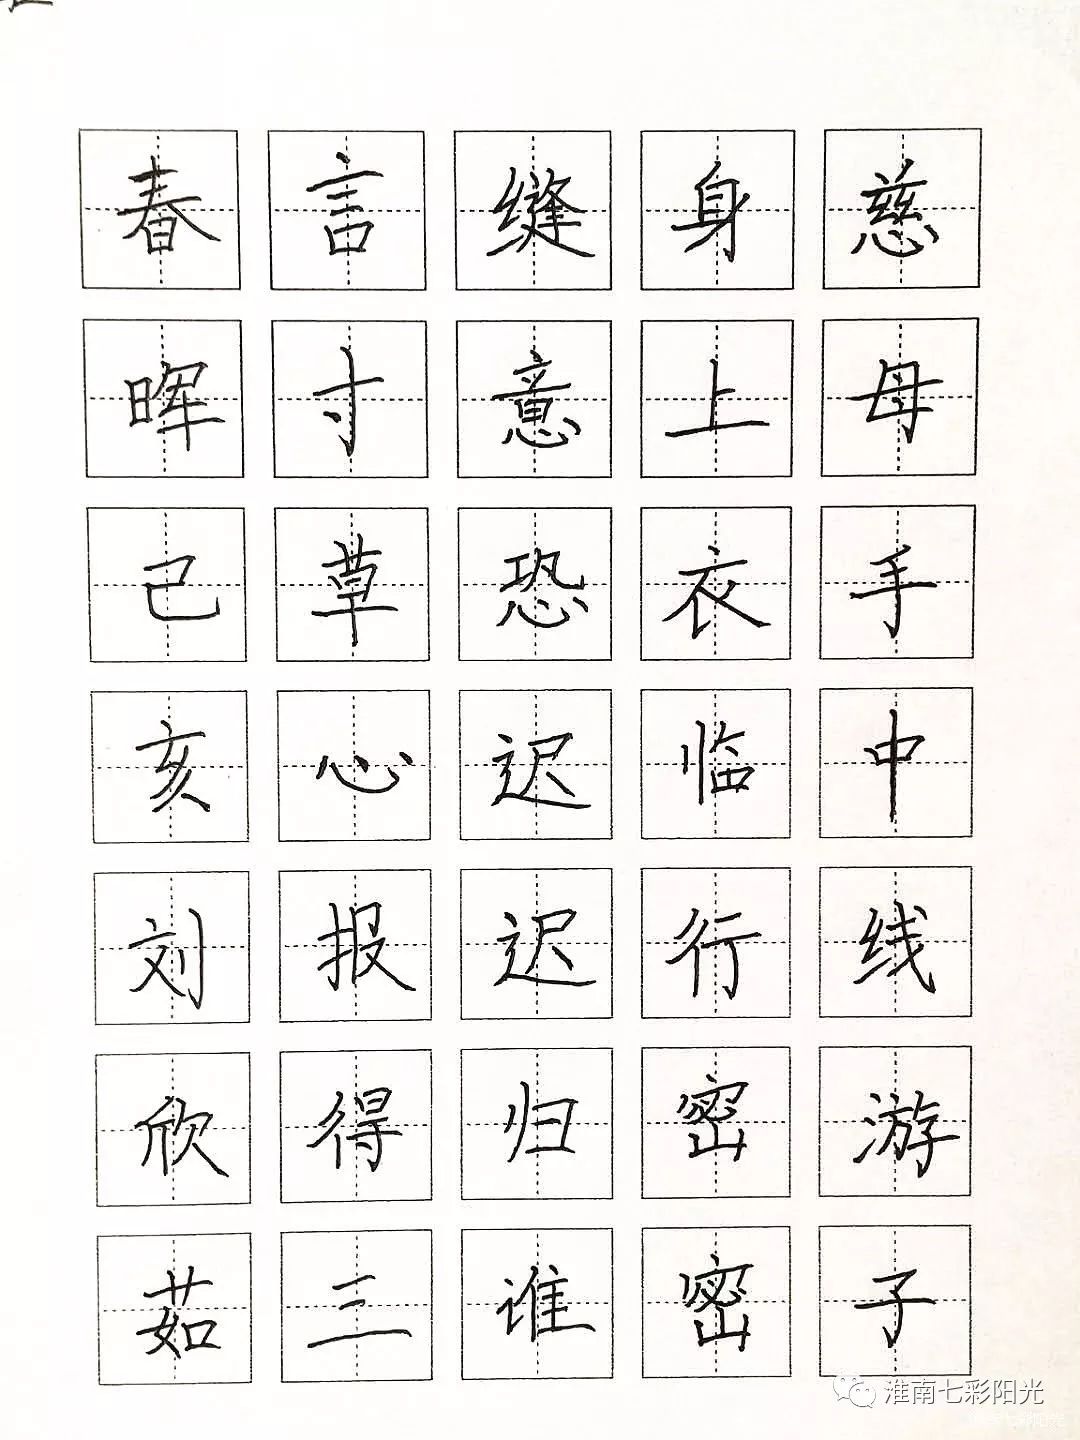 慈母手中线游子
身上衣临行密密
缝意恐迟迟归谁
言寸草心报得三
春晖己亥刘欣茹
淮南七彩阳光